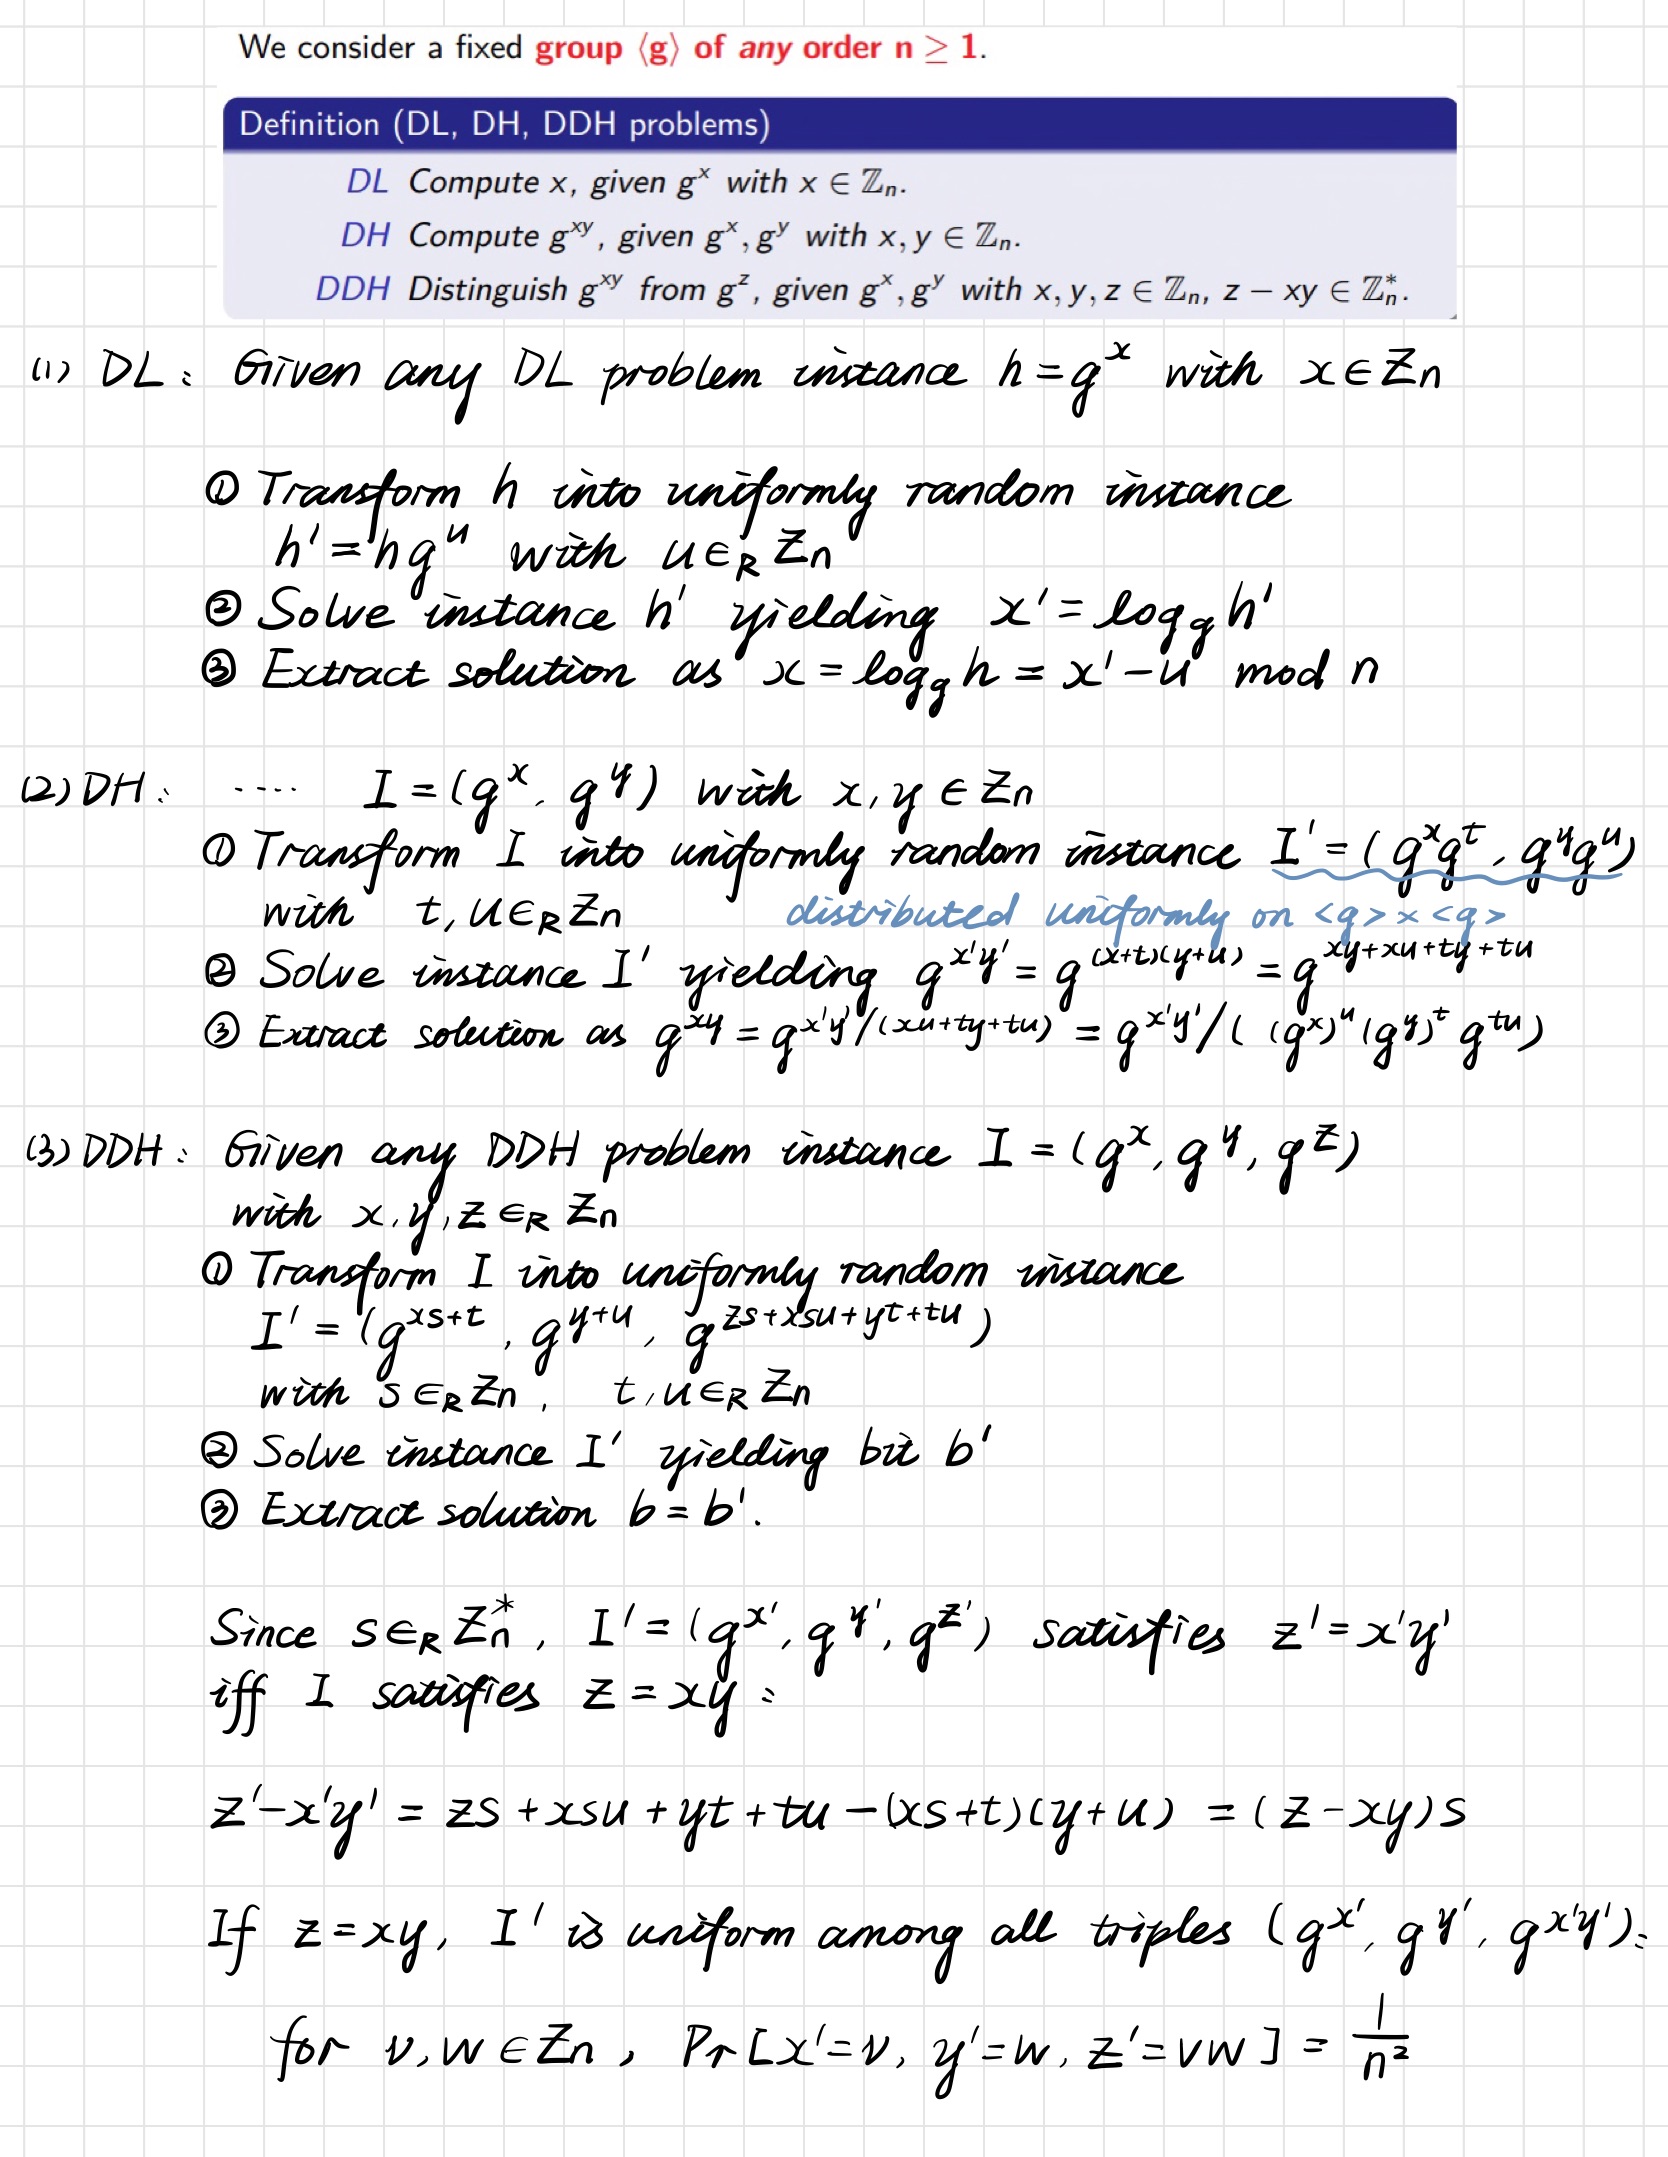 We consider a fixed group ⟨g⟩ of any order n ≥ 1.
Definition (DL, DH, DDH problems)
DL Compute x, given g^x with x ∈ ℤ_n.
DH Compute g^{xy}, given g^x, g^y with x, y ∈ ℤ_n.
DDH Distinguish g^{xy} from g^z, given g^x, g^y with x, y, z ∈ ℤ_n, z − xy ∈ ℤ_n^*.
(1) DL: Given any DL problem instance h = g^x with x ∈ Z_n
① Transform h into uniformly random instance
h' = hg^u with u ∈_R Z_n
② Solve instance h' yielding x' = log_g h'
③ Extract solution as x = log_g h = x' − u mod n
(2) DH: ···· I = (g^x, g^y) with x, y ∈ Z_n
① Transform I into uniformly random instance I' = (g^x g^t, g^y g^u)
with t, u ∈_R Z_n distributed uniformly on <g> × <g>
② Solve instance I' yielding g^{x'y'} = g^{(x+t)(y+u)} = g^{xy+xu+ty+tu}
③ Extract solution as g^{xy} = g^{x'y'/(xu+ty+tu)} = g^{x'y'} / ( (g^x)^u (g^y)^t g^{tu})
(3) DDH: Given any DDH problem instance I = (g^x, g^y, g^z)
with x, y, z ∈_R Z_n
① Transform I into uniformly random instance
I' = (g^{xs+t}, g^{y+u}, g^{zs+xsu+yt+tu})
with s ∈_R Z_n, t, u ∈_R Z_n
② Solve instance I' yielding bit b'
③ Extract solution b = b'.
Since s ∈_R Z_n^*, I' = (g^{x'}, g^{y'}, g^{z'}) satisfies z' = x'y'
iff I satisfies z = xy:
z' − x'y' = zs + xsu + yt + tu − (xs+t)(y+u) = (z − xy)s
If z = xy, I' is uniform among all triples (g^{x'}, g^{y'}, g^{x'y'}):
for v, w ∈ Z_n, Pr[x' = v, y' = w, z' = vw] = 1/n²